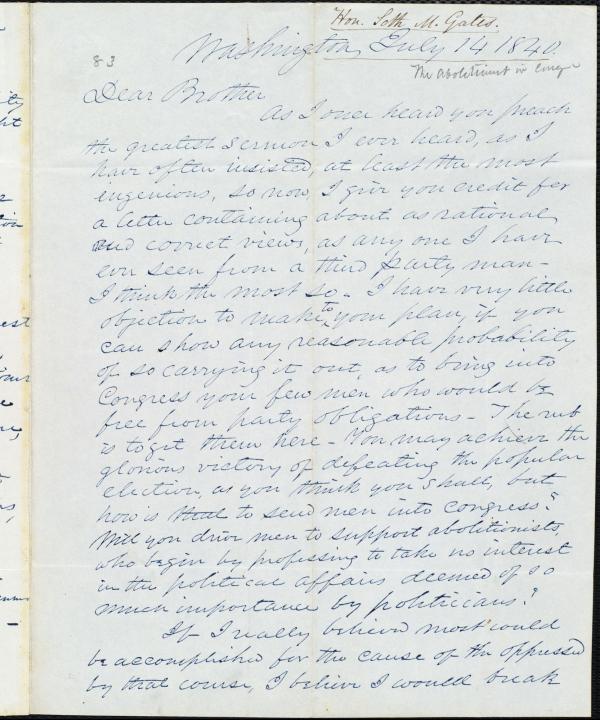 Hon. Seth M. Gates.
83
Washington, July 14 1840.
The abolitionist in Cong
Dear Brother
As I once heard you preach
the greatest sermon I ever heard, as I
have often insisted, at least the most
ingenious, so now I give you credit for
a letter containing about as rational
and correct views, as any one I have
ever seen from a third party man -
I think the most so. - I have very little
objection to make to your plan, if you
can show any reasonable probability
of so carrying it out, as to bring into
Congress your few men who would be
free from party obligations - The rub
is to get them here - You may achieve the
glorious victory of defeating the popular
election, as you think you shall, but
how is that to send men into Congress?
Will you drive men to support abolitionists,
who begin by professing to take no interest
in the political affairs deemed of so
much importance by politicians?
If I really believed most could
be accomplished for the cause of the oppressed
by that course, I believe I would break